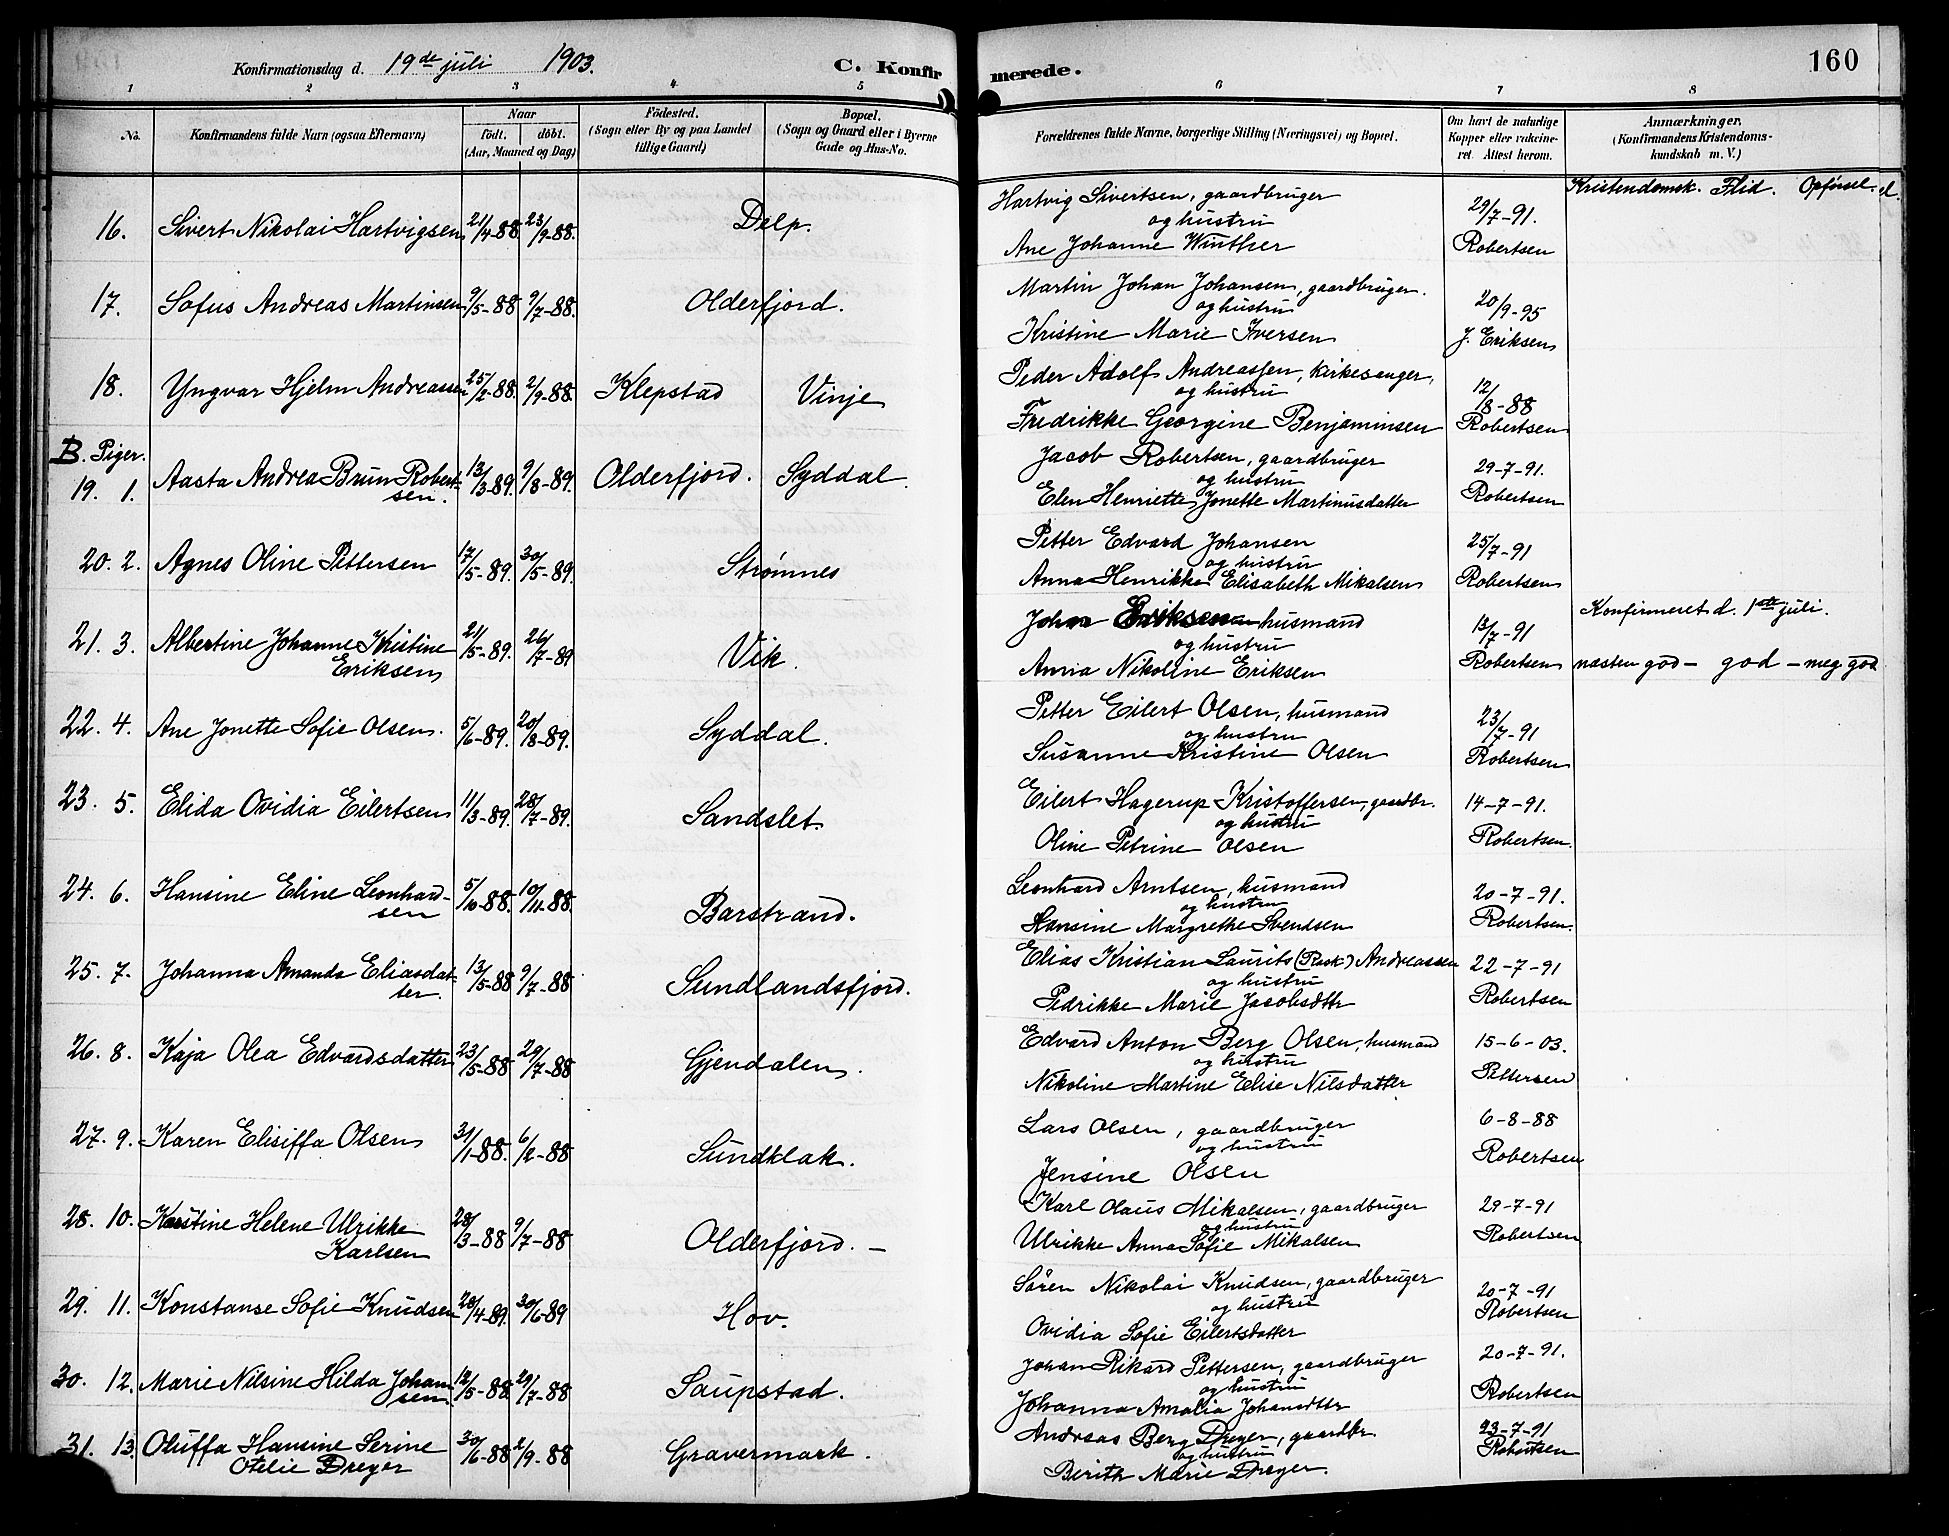 160
Konfirmationsdag d. 19de juli 1903. C. Konfirmerede.
1 2 3 4 5 6 7 8
No. Konfirmandens fulde Navn (ogsaa Efternavn) Naar født. døbt. (Aar, Maaned og Dag) Födested. (Sogn eller By og paa Landet tillige Gaard) Bopæl. (Sogn og Gaard eller i Byerne Gade og Hus-No. Forældrenes fulde Navne, borgerlige Stilling (Næringsvei) og Bopæl. Om havt de naturlige Kopper eller vakcineret. Attest herom. Anmærkninger, (Konfirmandens Kristendomskundskab m. V.)
Kristendomsk. Flid. Opførsel.
16. Sivert Nikolai Hartvigsen 21/4-88 23/9-88. Delp. Hartvig Sivertsen, gaardbruger 29/7-91.
og hustru
Ane Johanne Winther Robertsen
17. Sofus Andreas Martinsen 9/5-88 9/7-88. Olderfjord. Martin Johan Johansen, gaardbruger. 20/9-95
og hustru
Kristine Marie Iversen J. Eriksen
18. Yngvar Hjelm Andreassen 25/2-88. 2/9-88. Klepstad Vinje Peder Adolf Andreassen, kirkesanger, 12/8-88
og hustru
Fredrikke Georgine Benjaminsen Robertsen
B. Piger.
19. 1. Aasta Andrea Brun Robertsen. 13/3-89. 9/8-89. Olderfjord. Syddal. Jacob Robertsen, gaardbruger 29-7-91.
og hustru
Elen Henriette Jonette Martinusdatter Robertsen
20. 2. Agnes Oline Pettersen 17/5-89. 30/5-89. Strømnes Petter Edvard Johansen 25/7-91
og hustru
Anna Henrikke Elisabeth Mikalsen Robertsen
21. 3. Albertine Johanne Kristine Eriksen 21/5-89. 26/7-89 Vik. Johan Eriksen husmand 13/7-91 Konfirmeret d. 1ste juli.
og hustru
Anna Nikoline Eriksen Robertsen næsten god - god - meg god
22. 4. Ane Jonette Sofie Olsen. 5/6-89. 20/8-89. Syddal. Petter Eilert Olsen, husmand 23/7-91
og hustru
Susanne Kristine Olsen Robertsen
23. 5. Elida Ovidia Eilertsen 11/3-89. 28/7-89. Sandslet. Eilert Hagerup Kristoffersen, gaardbr. 14-7-91.
og hustru
Oline Petrine Olsen Robertsen.
24. 6. Hansine Eline Leonhardsen 5/10-88. 10/11-88. Barstrand. Leonhard Arntsen, husmand 20-7-91.
og hustru
Hansine Margrethe Svendsen Robertsen.
25. 7. Johanna Amanda Eliasdatter. 13/5-88 9/7-88 Sundlandsfjord. Elias Kristian Laurits (Rask) Andreassen 22-7-91
og hustru
Pedrikke Marie Jacobsdttr Robertsen
26. 8. Kaja Olea Edvardsdatter 23/5-88 29/7-88 Gjendalen. Edvard Anton Berg Olsen, husmand 15-6-03.
og hustru
Nikoline Martine Elise Nilsdatter Pettersen
27. 9. Karen Elisiffa Olsen 31/1-88. 6/2-88 Sundklak. Lars Olsen, gaardbruger 6-8-88
og hustru
Jensine Olsen Robertsen
28. 10. Kristine Helene Ulrikke Karlsen 28/3-88 9/7-88 Olderfjord. - Karl Olaus Mikalsen, gaardbruger 29-7-91
og hustru
Ulrikke Anna Sofie Mikalsen Robertsen
29. 11. Konstanse Sofie Knudsen 28/4-89. 30/6-89 Hov. Søren Nikolai Knudsen, gaardbruger 20-7-91
og hustru
Ovidia Sofie Eilertsdatter Robertsen
30. 12. Marie Nilsine Hilda Johansen 12/5-88. 29/7-88 Saupstad. Johan Rikard Pettersen, gaardbruger 20-7-91.
og hustru
Johanna Amalia Johansdttr Robertsen
31. 13. Oluffa Hansine Serine Otelie Dreyer 30/6-88 2/9-88 Gravermark. Andreas Berg Dreyer, gaardbr 23-7-91
og hustru
Berith Marie Dreyer. Robertsen